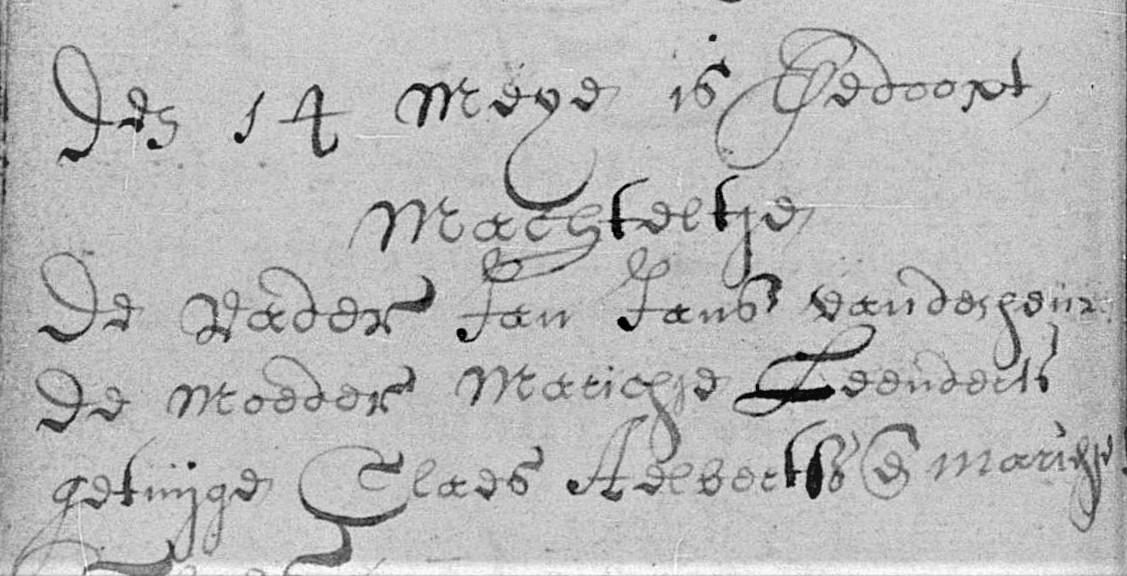 Den 14 Meye is Gedoopt
Machteltje
De Vader Jan Jans
De Moeder Marichje Leenderts
getuijge Claes Aelberts en Marichje